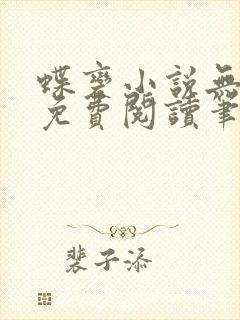 蝶变小説無
免費閱讀筆
裴子添